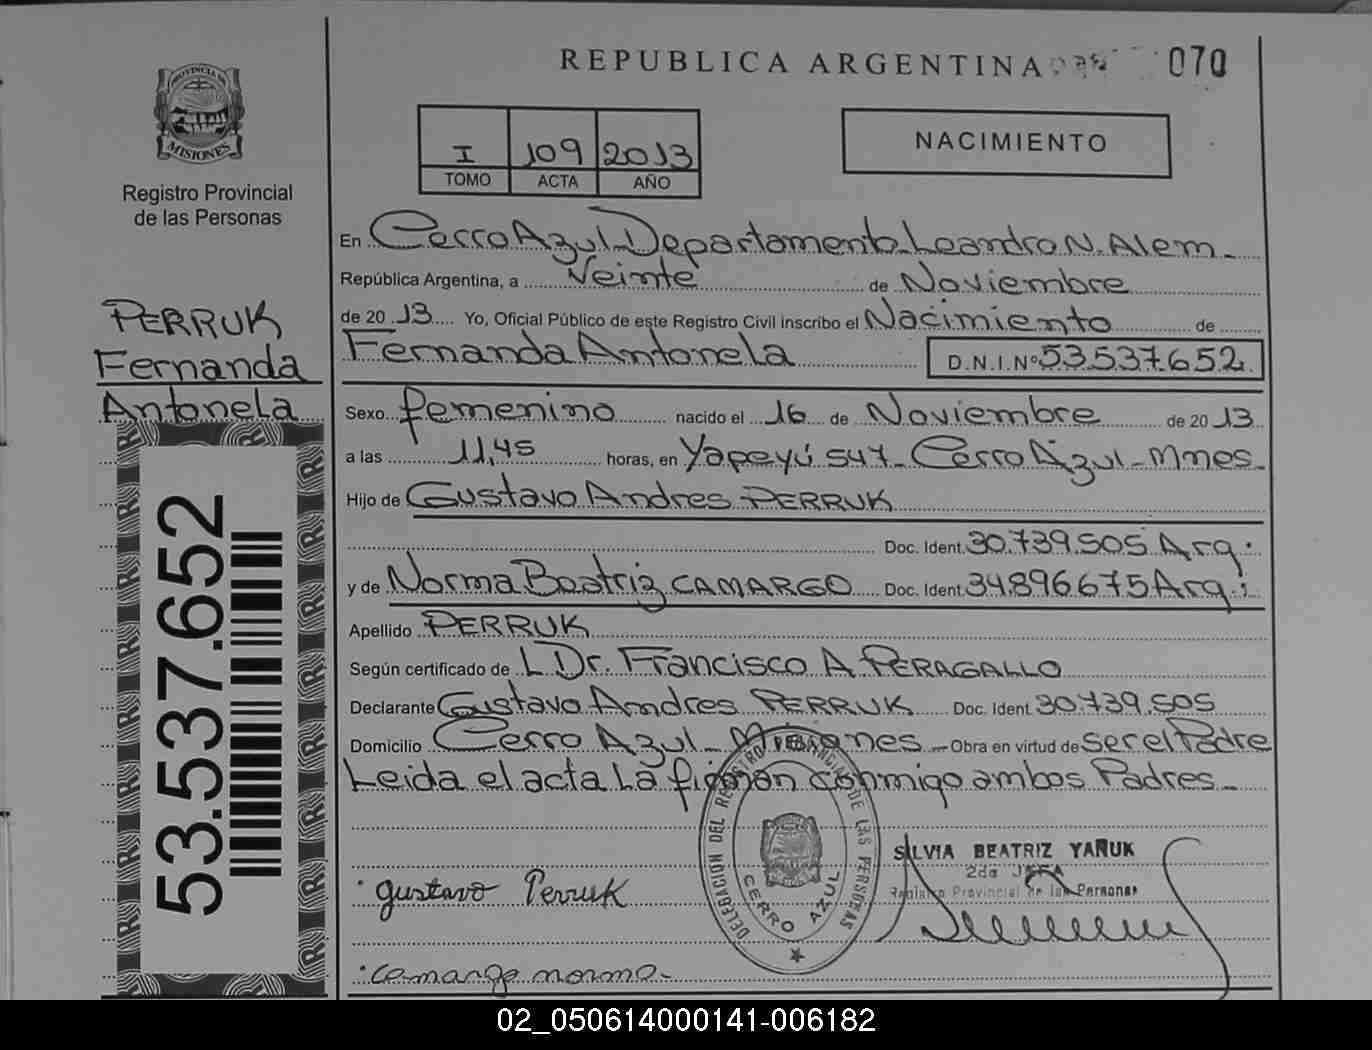 REPUBLICA ARGENTINA 070
PROVINCIA DE
MISIONES
Registro Provincial
de las Personas
I 109 2013
TOMO ACTA AÑO
NACIMIENTO
En Cerro Azul Departamento Leandro N. Alem
República Argentina, a Veinte de Noviembre
de 20 13 Yo, Oficial Público de este Registro Civil inscribo el Nacimiento de
Fernanda Antonela D.N.I.Nº 53.537.652
PERRUK
Fernanda
Antonela
Sexo femenino nacido el 16 de Noviembre de 20 13
a las 11,45 horas, en Yapeyú 547 - Cerro Azul - Mnes
Hijo de Gustavo Andres PERRUK
Doc. Ident. 30.739.505 Arg.
y de Norma Beatriz CAMARGO Doc. Ident. 34.896.675 Arg.
Apellido PERRUK
Según certificado de L Dr. Francisco A PERAGALLO
Declarante Gustavo Andres PERRUK Doc. Ident. 30.739.505
Domicilio Cerro Azul - Misiones - Obra en virtud de ser el Padre
Leida el acta La firman conmigo ambos Padres
53.537.652
DELEGACION DEL REGISTRO PROVINCIAL DE LAS PERSONAS
CERRO AZUL
SILVIA BEATRIZ YAÑUK
2da JEFA
Registro Provincial de las Personas
gustavo Perruk
camargo norma
02_050614000141-006182